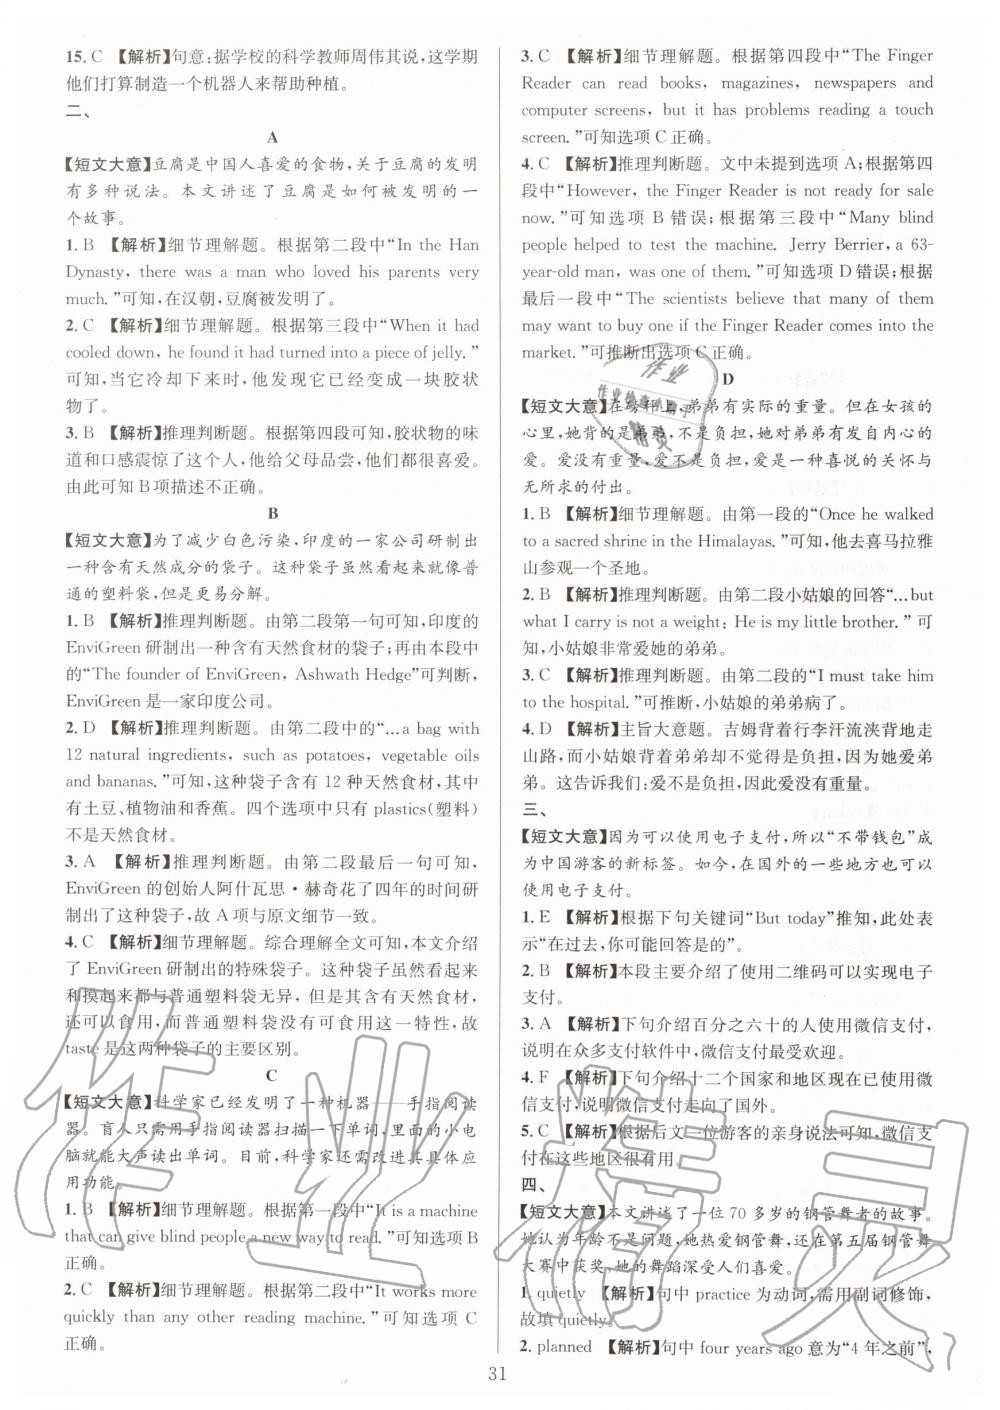 15. C 【解析】句意:据学校的科学教师周伟其说,这学期
他们打算制造一个机器人来帮助种植。
二、
A
【短文大意】豆腐是中国人喜爱的食物,关于豆腐的发明
有多种说法。本文讲述了豆腐是如何被发明的一
个故事。
1. B 【解析】细节理解题。根据第二段中“In the Han
Dynasty, there was a man who loved his parents very
much.”可知,在汉朝,豆腐被发明了。
2. C 【解析】细节理解题。根据第三段中“When it had
cooled down, he found it had turned into a piece of jelly.”
可知,当它冷却下来时,他发现它已经变成一块胶状
物了。
3. B 【解析】推理判断题。根据第四段可知,胶状物的味
道和口感震惊了这个人,他给父母品尝,他们都很喜爱。
由此可知B项描述不正确。
B
【短文大意】为了减少白色污染,印度的一家公司研制出
一种含有天然成分的袋子。这种袋子虽然看起来就像普
通的塑料袋,但是更易分解。
1. B 【解析】推理判断题。由第二段第一句可知,印度的
EnviGreen研制出一种含有天然食材的袋子;再由本段中
的“The founder of EnviGreen, Ashwath Hedge”可判断,
EnviGreen是一家印度公司。
2. D 【解析】推理判断题。由第二段中的“...a bag with
12 natural ingredients, such as potatoes, vegetable oils
and bananas.”可知,这种袋子含有12种天然食材,其中
有土豆、植物油和香蕉。四个选项中只有plastics(塑料)
不是天然食材。
3. A 【解析】推理判断题。由第二段最后一句可知,
EnviGreen的创始人阿什瓦思·赫奇花了四年的时间研
制出了这种袋子,故A项与原文细节一致。
4. C 【解析】细节理解题。综合理解全文可知,本文介绍
了EnviGreen研制出的特殊袋子。这种袋子虽然看起来
和摸起来都与普通塑料袋无异,但是其含有天然食材,
还可以食用,而普通塑料袋没有可食用这一特性,故
taste是这两种袋子的主要区别。
C
【短文大意】科学家已经发明了一种机器——手指阅读
器。盲人只需用手指阅读器扫描一下单词,里面的小电
脑就能大声读出单词。目前,科学家还需改进其具体应
用功能。
1. B 【解析】细节理解题。根据第一段中“It is a machine
that can give blind people a new way to read.”可知选项B
正确。
2. C 【解析】细节理解题。根据第二段中“It works more
quickly than any other reading machine.”可知选项C
正确。
3. C 【解析】细节理解题。根据第四段中“The Finger
Reader can read books, magazines, newspapers and
computer screens, but it has problems reading a touch
screen.”可知选项C正确。
4. C 【解析】推理判断题。文中未提到选项A;根据第四
段中“However, the Finger Reader is not ready for sale
now.”可知选项B错误;根据第三段中“Many blind
people helped to test the machine. Jerry Berrier, a 63-
year-old man, was one of them.”可知选项D错误;根据
最后一段中“The scientists believe that many of them
may want to buy one if the Finger Reader comes into the
market.”可推断出选项C正确。
D
【短文大意】在秤上,弟弟有实际的重量。但在女孩的
心里,她背的是弟弟,不是负担,她对弟弟有发自内心的
爱。爱没有重量,爱不是负担,爱是一种喜悦的关怀与
无所求的付出。
1. B 【解析】细节理解题。由第一段的“Once he walked
to a sacred shrine in the Himalayas.”可知,他去喜马拉雅
山参观一个圣地。
2. B 【解析】推理判断题。由第二段小姑娘的回答“...but
what I carry is not a weight; He is my little brother.”可
知,小姑娘非常爱她的弟弟。
3. C 【解析】推理判断题。由第二段的“I must take him
to the hospital.”可推断,小姑娘的弟弟病了。
4. D 【解析】主旨大意题。吉姆背着行李汗流浃背地走
山路,而小姑娘背着弟弟却不觉得是负担,因为她爱弟
弟。这告诉我们:爱不是负担,因此爱没有重量。
三、
【短文大意】因为可以使用电子支付,所以“不带钱包”成
为中国游客的新标签。如今,在国外的一些地方也可以
使用电子支付。
1. E 【解析】根据下句关键词“But today”推知,此处表
示“在过去,你可能回答是的”。
2. B 【解析】本段主要介绍了使用二维码可以实现电子
支付。
3. A 【解析】下句介绍百分之六十的人使用微信支付,
说明在众多支付软件中,微信支付最受欢迎。
4. F 【解析】下句介绍十二个国家和地区现在已经可以
使用,说明微信支付走向了国外。
5. C 【解析】根据后文一位游客的亲身说法可知,微信支
付在这些地区很有用。
四、
【短文大意】本文讲述了一位70多岁的钢管舞者的故事。
她认为年龄不是问题,她热爱钢管舞,还在第五届钢管舞
大赛中获奖,她的舞蹈深受人们喜爱。
1. quietly 【解析】句中practice为动词,需用副词修饰,
故填quietly。
2. planned 【解析】句中four years ago意为“4年之前”,
31
作业精灵